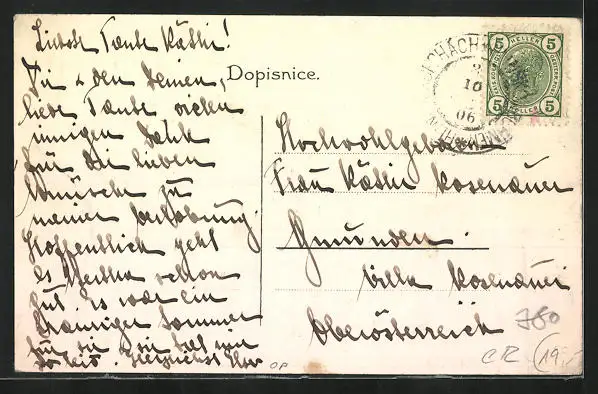 Liebste Tante Käthi!
Dir & den Deinen,
liebe Tante vielen
innigen Dank
für die lieben
Wünsche zu
meiner Verlobung.
Hoffentlich geht
es Bertha schon
gut. Es war ein
trauriger Sommer
für sie, sie tat mir
so leid. Herzlichst
Dopisnice.
5 HELLER 5
5 HELLER 5
10
06
Hochwohlgeboren
Frau Käthi Rosenauer
Gmunden.
Villa Rosenauer
Oberösterreich
780
CR
OP